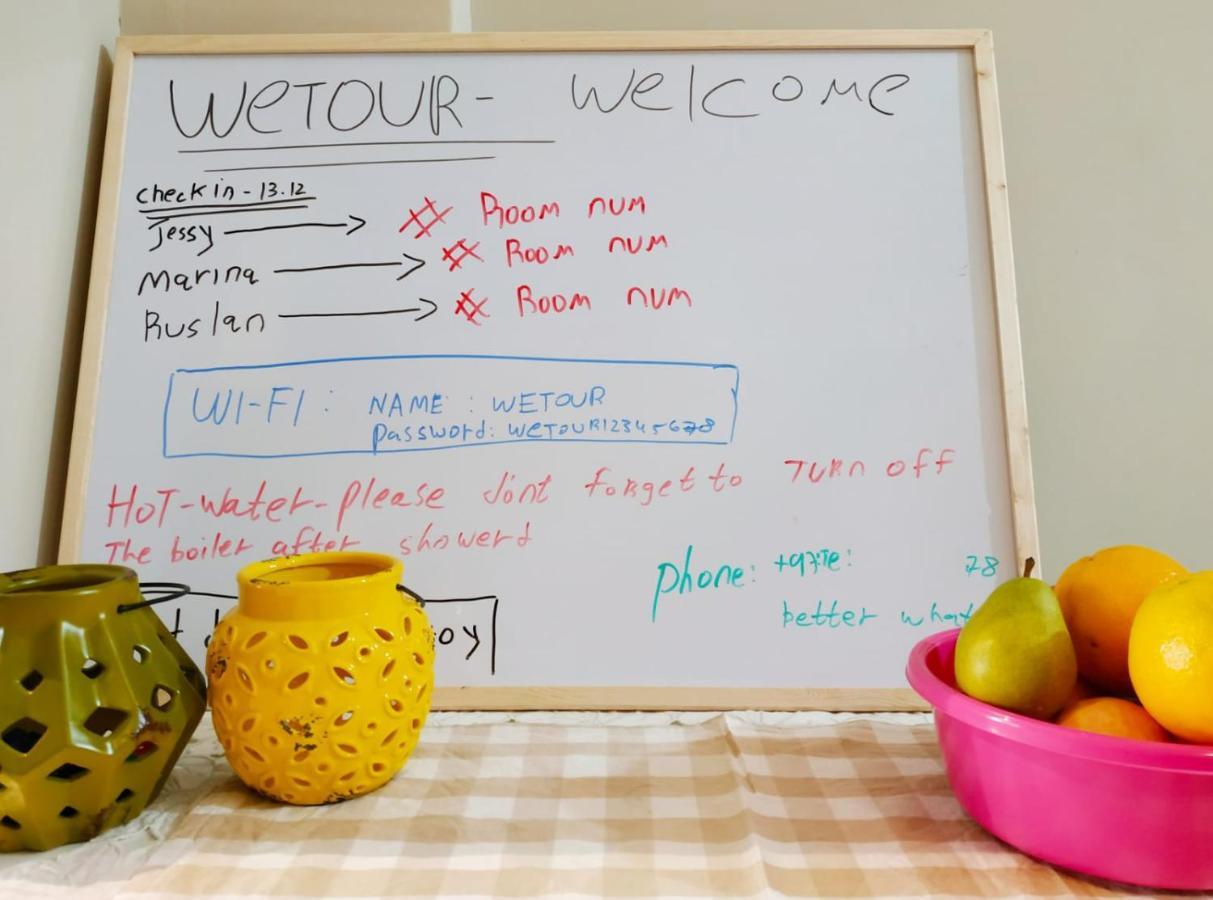 WeTOUR- Welcome
Check in - 13.12
Jessy → # Room num
Marina → # Room num
Ruslan → # Room num
WI-FI: NAME : WETOUR
Password: WeTOUR12345678
HOT-Water-Please dont forget to TURN off
The boiler after showerd
Phone: 78
better what
oy